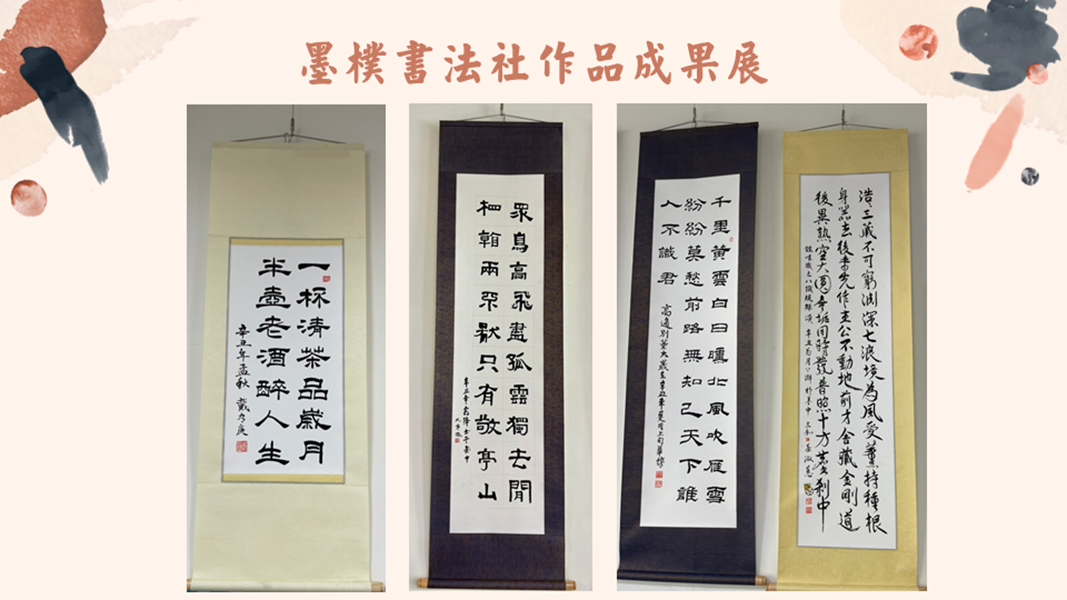 墨樸書法社作品成果展
一杯清茶品歲月
半壺老酒醉人生
辛丑年孟秋 戴乃庚
眾鳥高飛盡孤雲獨去閒
相看兩不厭只有敬亭山
千里黃雲白日曛北風吹雁雪
紛紛莫愁前路無知己天下誰
人不識君
高適別董大
浩浩三藏不可窮淵深七浪境為風受薰持種根
身器去後來先作主公不動地前才捨藏金剛道
後異熟空大圓無垢同時發普照十方塵剎中